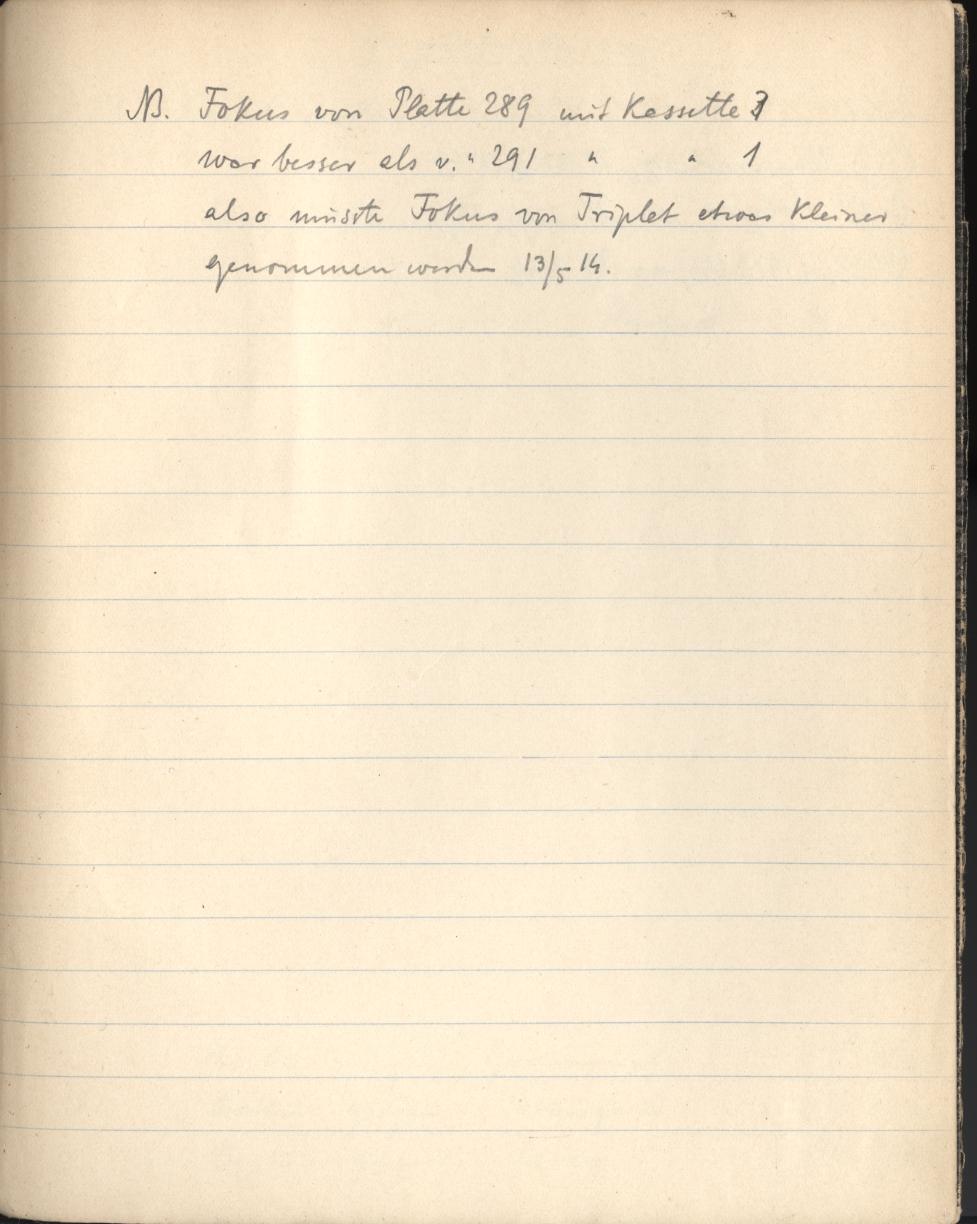 NB. Fokus von Platte 289 mit Kassette 3
war besser als v. " 291 " " 1
also müsste Fokus von Triplet etwas kleiner
genommen werden 13/5 14.